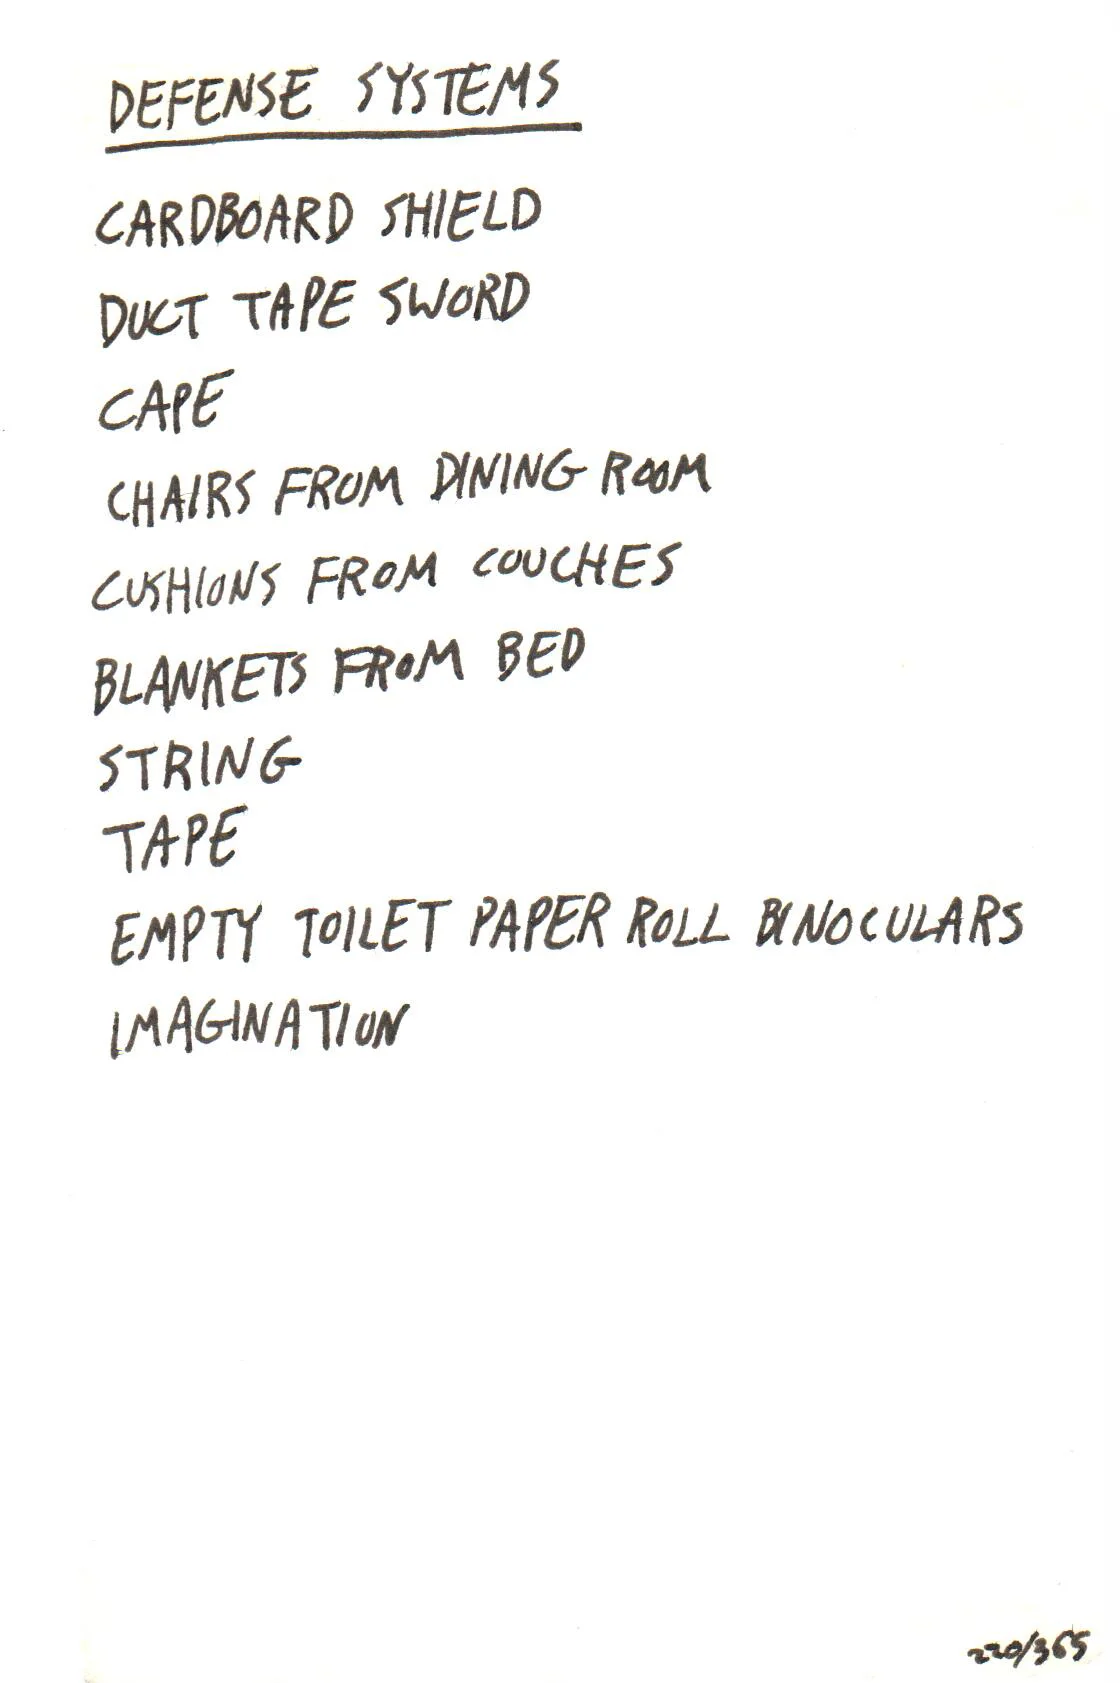 DEFENSE SYSTEMS
CARDBOARD SHIELD
DUCT TAPE SWORD
CAPE
CHAIRS FROM DINING ROOM
CUSHIONS FROM COUCHES
BLANKETS FROM BED
STRING
TAPE
EMPTY TOILET PAPER ROLL BINOCULARS
IMAGINATION
220/365